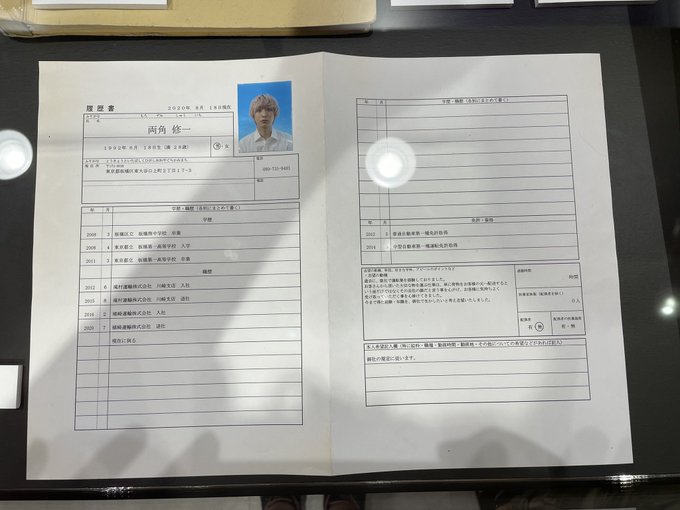 履歴書
2020年 8月 18日現在
ふりがな
もろ ずみ しゅう いち
氏 名
両角 修一
1992年 8月 18日生 (満 28歳)
男・女
ふりがな
電話
現住所
東京都板橋区東大谷口上町2丁目17-3
電話
年 月 学歴・職歴(各別にまとめて書く)
学歴
2008 3 板橋区立 板橋南中学校 卒業
2008 4 東京都立 板橋第一高等学校 入学
2011 3 東京都立 板橋第一高等学校 卒業
職歴
2012 6 滝村運輸株式会社 川崎支店 入社
2015 8 滝村運輸株式会社 川崎支店 退社
2016 2 植崎運輸株式会社 入社
2020 7 植崎運輸株式会社 退社
現在に到る
年 月 学歴・職歴(各別にまとめて書く)
年 月 免許・資格
2012 5 普通自動車第一種免許取得
2014 中型自動車第一種運転免許取得
志望の動機、特技、好きな学科、アピールポイントなど
・志望の動機
過去に、御社で運転業を経験しておりました。
通勤時間
時間
扶養家族数(配偶者を除く)
0人
配偶者
有・無
配偶者の扶養義務
有・無
本人希望記入欄(特に給料・職種・勤務時間・勤務地・その他についての希望などがあれば記入)
御社の規定に従います。